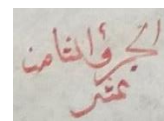 الجزؤ الثامن
عشر